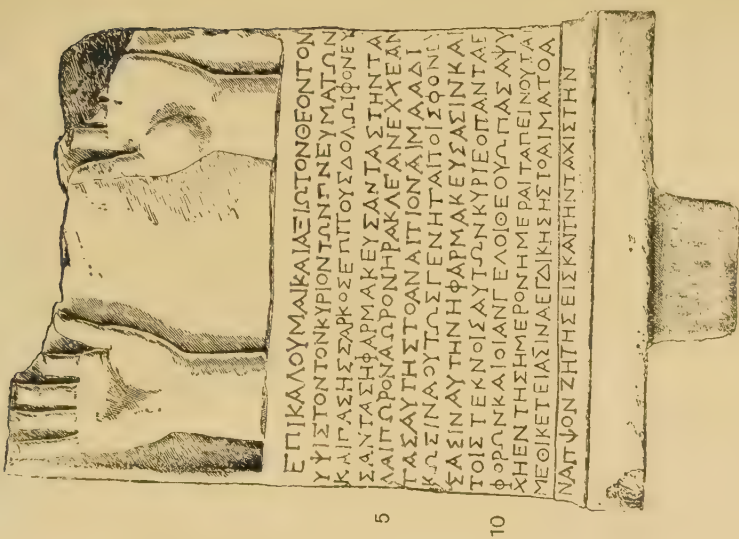 ΕΠΙΚΑΛΟΥΜΑΙΚΑΙΑΞΙΩΤΟΝΘΕΟΝΤΟΝ
ΥΨΙΣΤΟΝΤΟΝΚΥΡΙΟΝΤΩΝΠΝΕΥΜΑΤΩΝ
ΚΑΙΠΑΣΗΣΣΑΡΚΟΣΕΠΙΤΟΥΣΔΟΛΩΙΦΟΝΕΥ
ΣΑΝΤΑΣΗΦΑΡΜΑΚΕΥΣΑΝΤΑΣΤΗΝΤΑ
5 ΛΑΙΠΩΡΟΝΑΩΡΟΝΗΡΑΚΛΕΑΝΕΧΧΕΑΝ
ΤΑΣΑΥΤΗΣΤΟΑΝΑΙΤΙΟΝΑΙΜΑΑΔΙ
ΚΩΣΙΝΑΟΥΤΩΣΓΕΝΗΤΑΙΤΟΙΣΦΟΝΕΥ
ΣΑΣΙΝΑΥΤΗΝΗΦΑΡΜΑΚΕΥΣΑΣΙΝΚΑΙ
ΤΟΙΣΤΕΚΝΟΙΣΑΥΤΩΝΚΥΡΙΕΟΠΑΝΤΑΕ
10 ΦΟΡΩΝΚΑΙΟΙΑΝΓΕΛΟΙΘΕΟΥΩΠΑΣΑΨΥ
ΧΗΕΝΤΗΣΗΜΕΡΟΝΗΜΕΡΑΙΤΑΠΕΙΝΟΥΤΑΙ
ΜΕΘΙΚΕΤΕΙΑΣΙΝΑΕΓΔΙΚΗΣΗΣΤΟΑΙΜΑΤΟΑ
ΝΑΙΤΙΟΝΖΗΤΗΣΕΙΣΚΑΙΤΗΝΤΑΧΙΣΤΗΝ